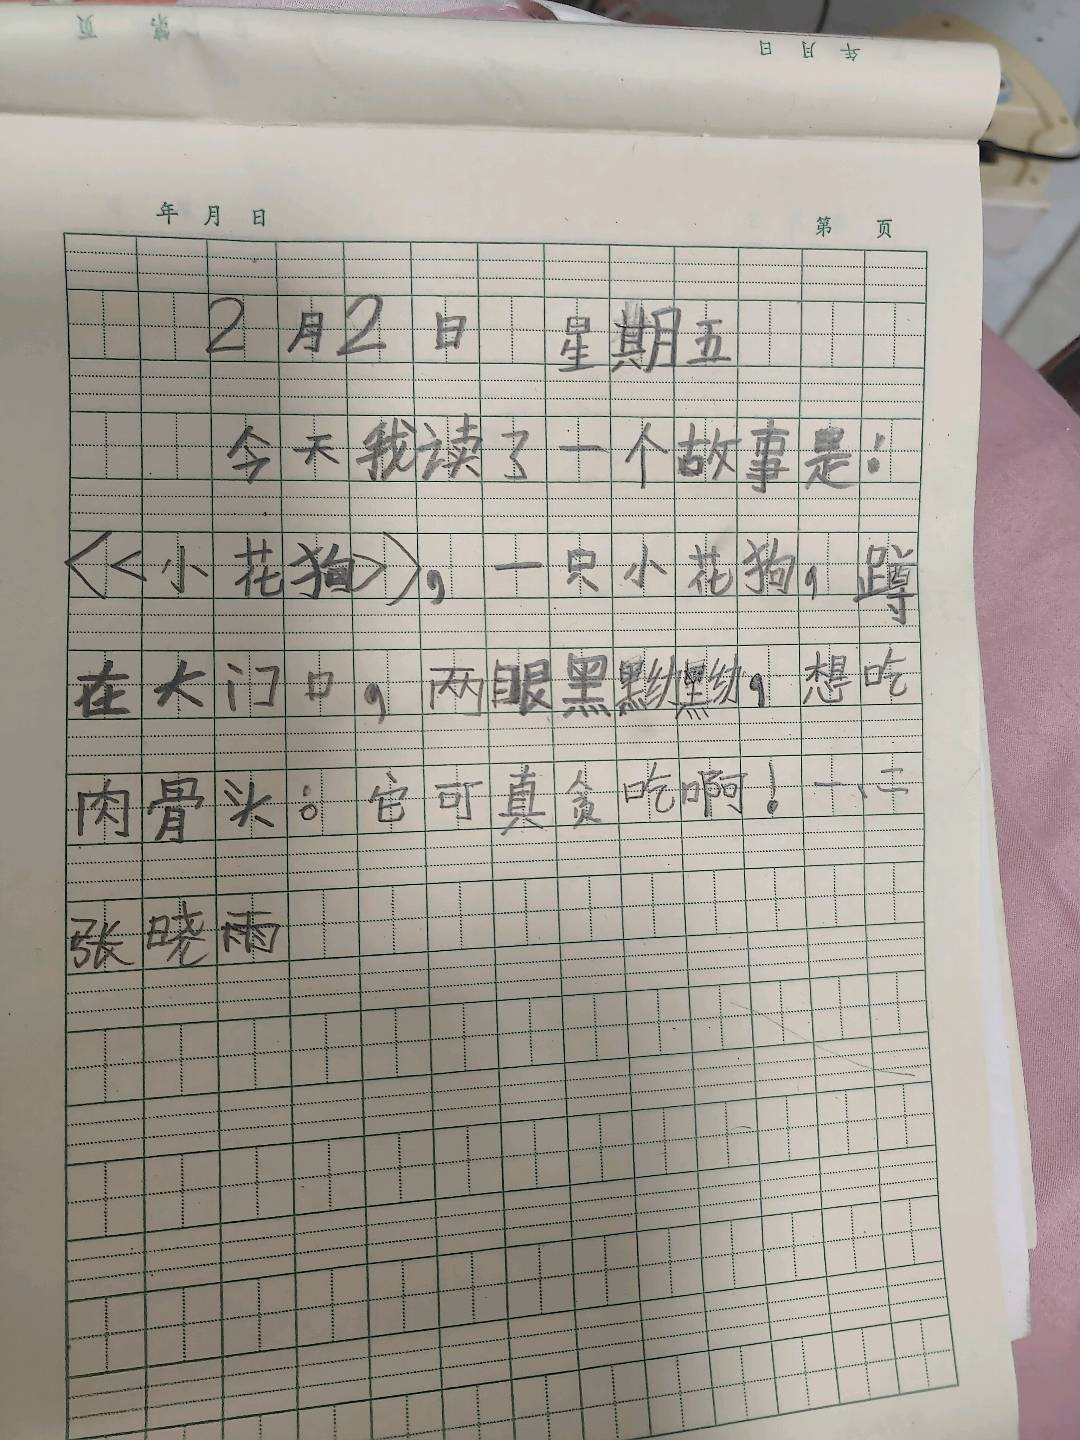 第 页 年 月 日
年 月 日 第 页
2月2日 星期五
今天我读了一个故事是：
<<小花狗>>，一只小花狗，蹲
在大门口，两眼黑黝黝，想吃
肉骨头：它可真贪吃啊！一、二
张晓雨